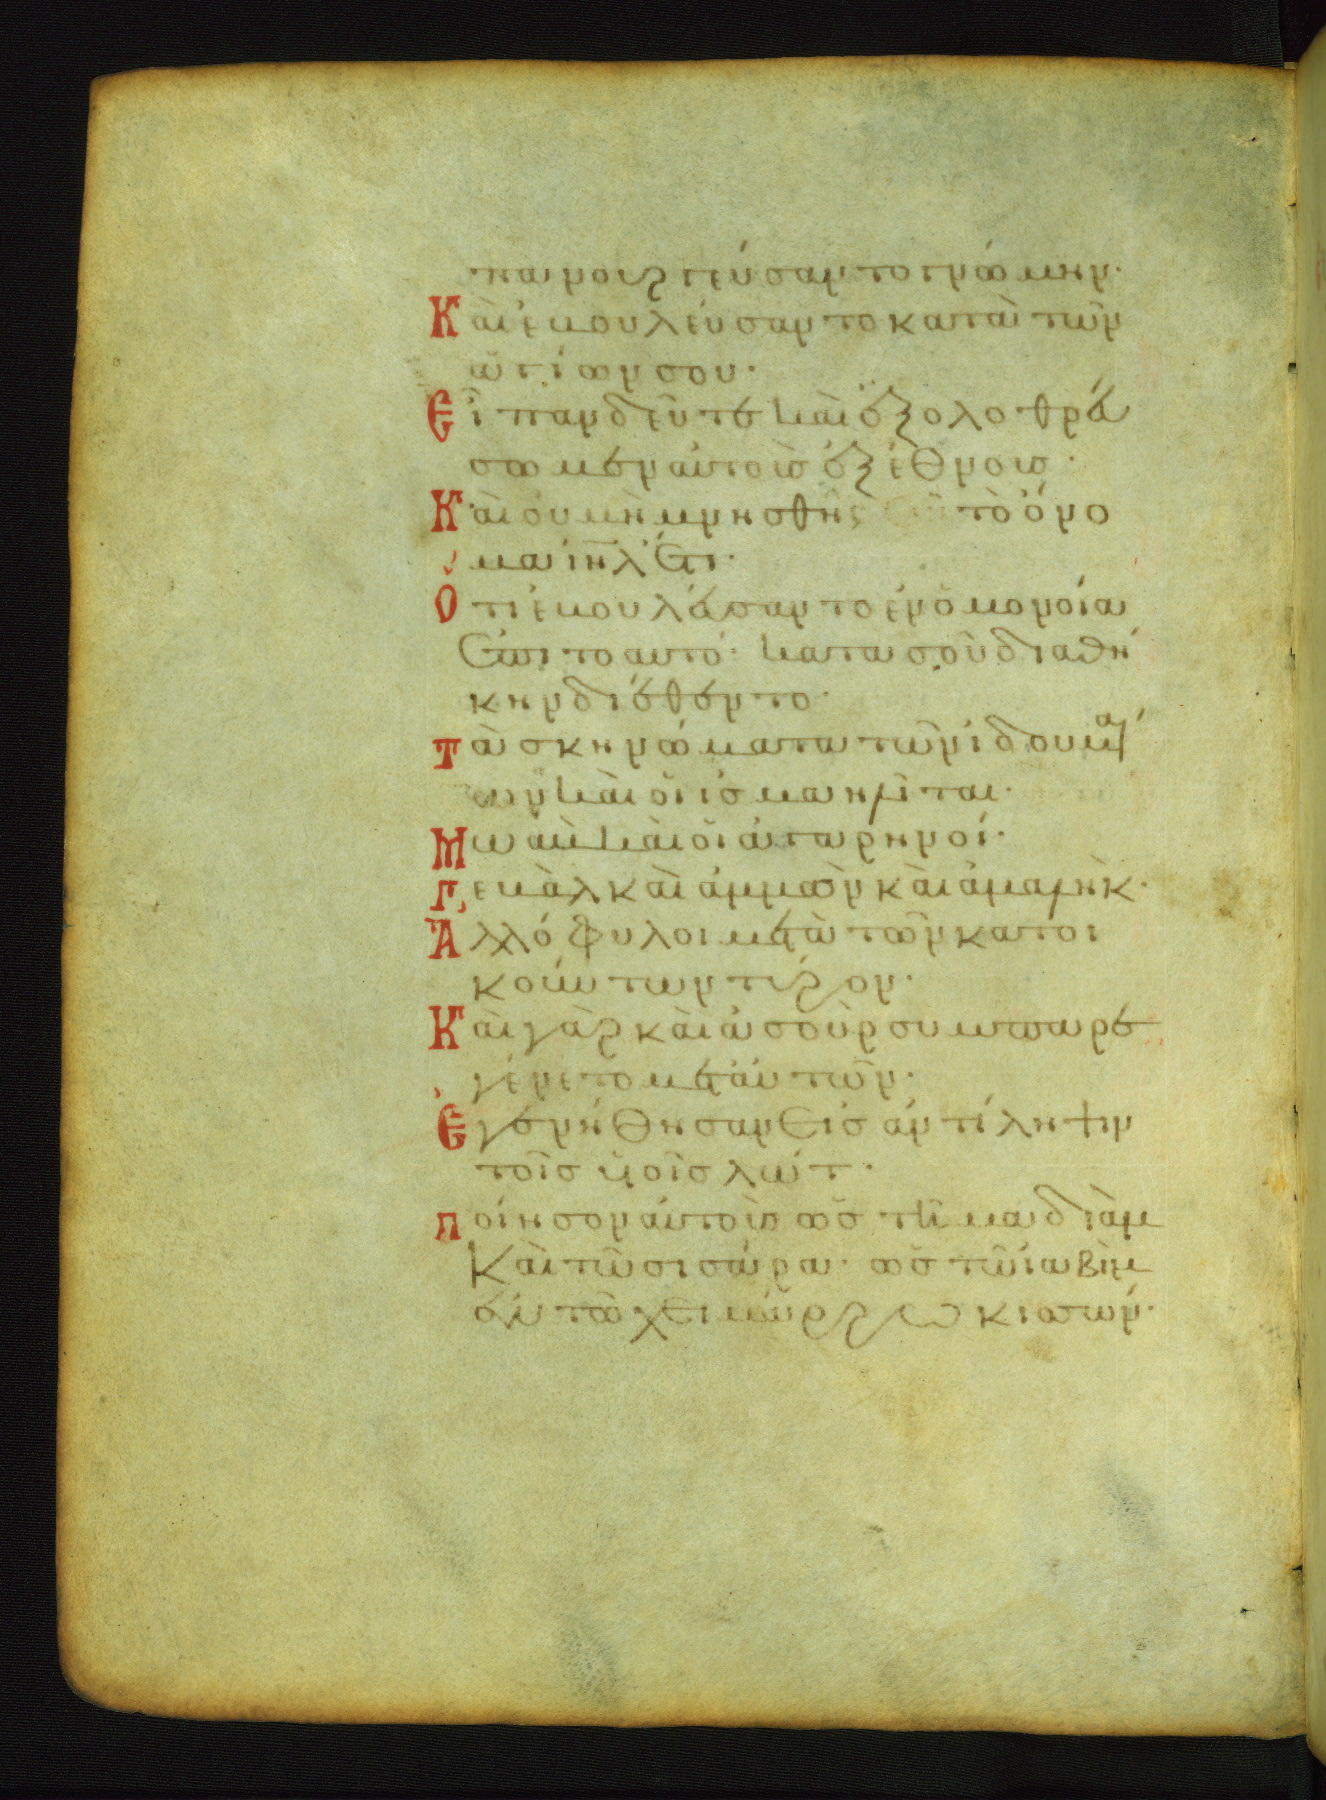 κανουργεύσαντο γνώμην·
Καὶ ἐβουλεύσαντο κατὰ τῶν
ἁγίων σου·
Εἶπαν δεῦτε καὶ ἐξολοθρεύ
σωμεν αὐτοὺς ἐξ ἔθνους·
Καὶ οὐ μὴ μνησθῆ τὸ ὄνο
μα ἰηλ ἔτι·
Ὅτι ἐβουλεύσαντο ἐν ὁμονοία
ἐπιτοαυτό· κατα σοῦ διαθή
κην διέθεντο·
Τὰ σκηνώματα τῶν ἰδουμαί
ων καὶ οἱ ἰσμαηλῖται·
Μωαβ καὶ οἱ ἀγαρηνοί·
Γεβὰλ καὶ ἀμμὼν καὶ ἀμαλὴκ·
Ἀλλόφυλοι μετὰ τῶν κατοι
κούντων τύρον·
Καὶ γὰρ καὶ ἀσσοὺρ συμπαρε
γένετο μετ αὐτῶν·
Ἐγενήθησαν εἰς ἀντίληψιν
τοῖς υἱοῖς λώτ·
Ποίησον αὐτοῖς ὡς τῆ μαδιὰμ
Καὶ τῶ σισάρα· ὡς τῶ ἰαβὶμ
ἐν τῶ χειμάρρω κισσών·